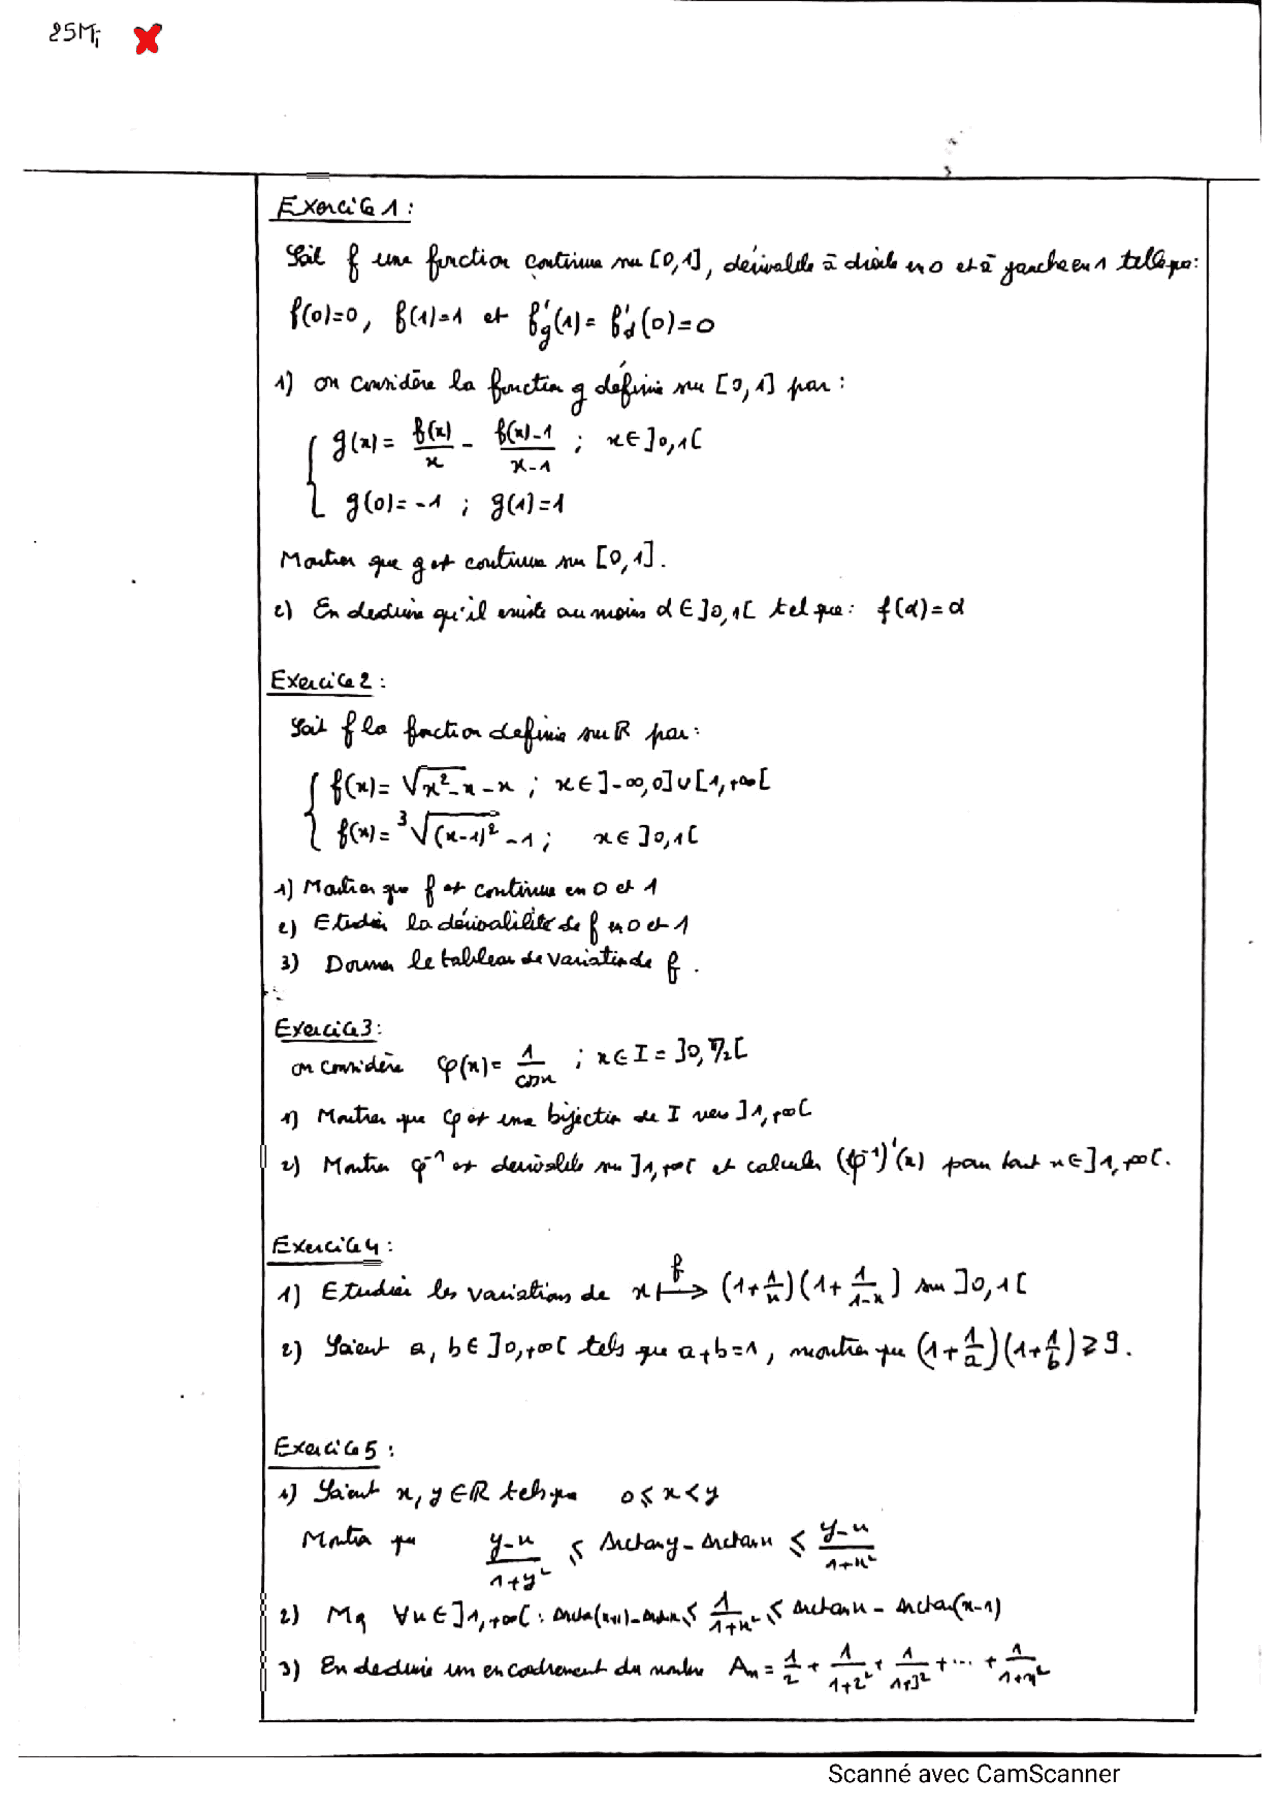 25Mi
Exercice 1 :
Soit f une fonction continue sur [0,1], dérivable à droite en 0 et à gauche en 1 telle que :
f(0)=0, f(1)=1 et f'g(1)= f'd(0)=0
1) on considère la fonction g définie sur [0,1] par :
g(x)= f(x)/x - (f(x)-1)/(x-1) ; x∈]0,1[
g(0)=-1 ; g(1)=1
Montrer que g est continue sur [0,1].
2) En deduire qu'il existe au moins α∈]0,1[ tel que : f(α)=α
Exercice 2 :
Soit f la fonction definie sur ℝ par :
f(x)= √(x²-x) - x ; x∈]-∞,0]∪[1,+∞[
f(x)= ³√((x-1)²) -1 ; x∈]0,1[
1) Montrer que f est continue en 0 et 1
2) Etudier la dérivabilité de f en 0 et 1
3) Donner le tableau de variation de f.
Exercice 3 :
on considère φ(x)= 1/cosx ; x∈I=]0,π/2[
1) Montrer que φ est une bijection de I vers ]1,+∞[
2) Montrer φ⁻¹ est derivable sur ]1,+∞[ et calculer (φ⁻¹)'(x) pour tout x∈]1,+∞[.
Exercice 4 :
1) Etudier les variations de x ↦f (1+1/x)(1+1/(1-x)) sur ]0,1[
2) Soient a, b∈]0,+∞[ tels que a+b=1, montrer que (1+1/a)(1+1/b)≥9.
Exercice 5 :
1) Soient x, y∈ℝ tels que 0≤x<y
Montrer que (y-x)/(1+y²) ≤ Arctany - Arctanx ≤ (y-x)/(1+x²)
2) Mq ∀x∈]1,+∞[ : Arctan(x+1)-Arctanx ≤ 1/(1+x²) ≤ Arctanx - Arctan(x-1)
3) En deduire un encadrement du nombre An= 1/2 + 1/(1+2²) + 1/(1+3²) + ... + 1/(1+n²)
Scanné avec CamScanner